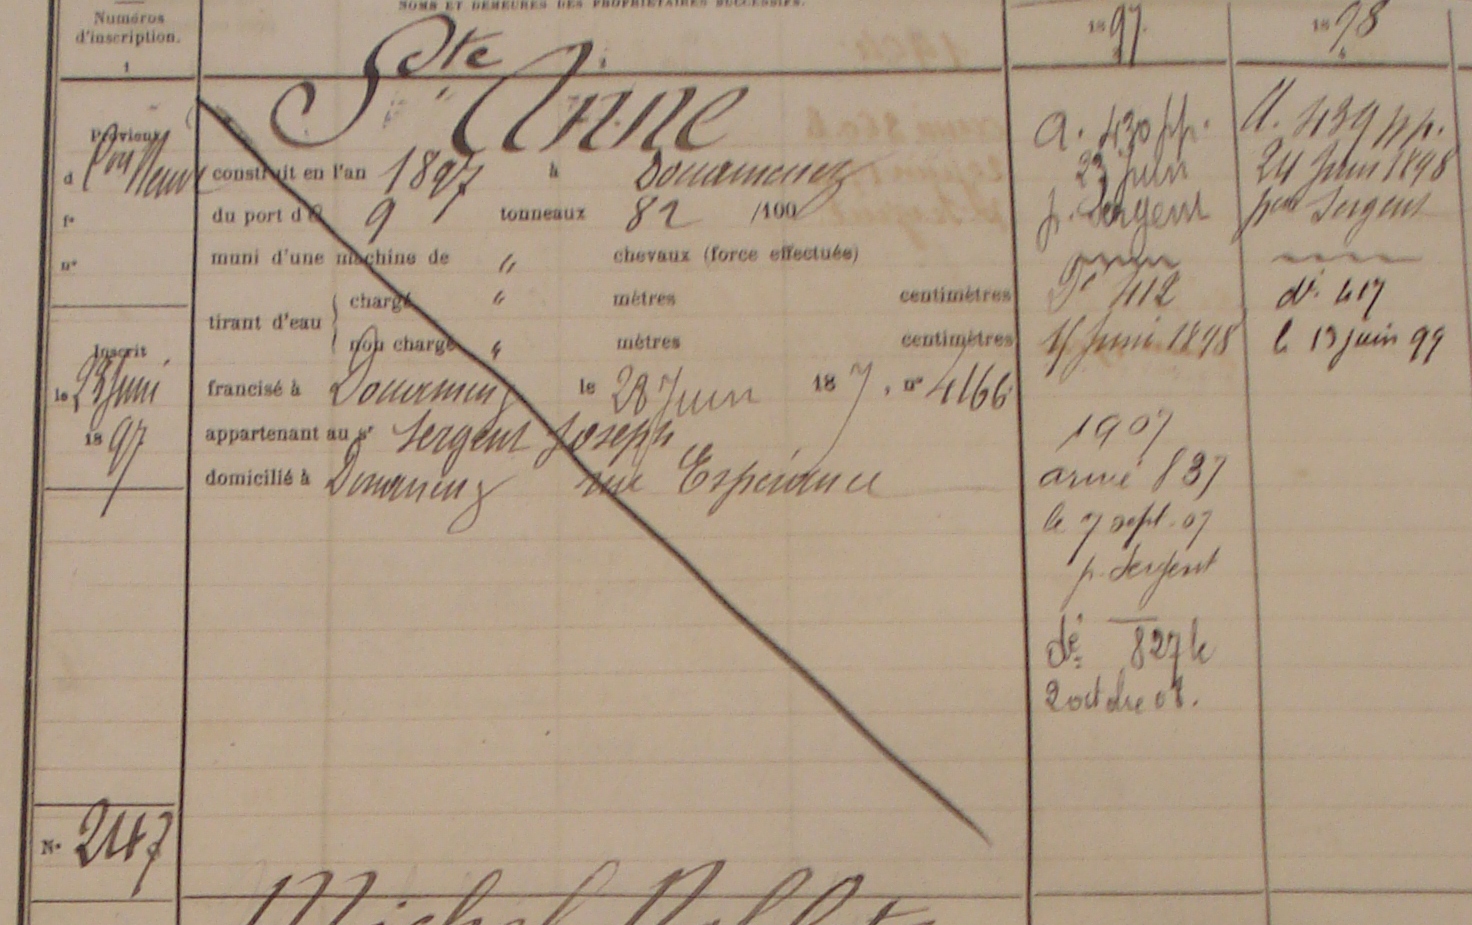 NOMS ET DEMEURES DES PROPRIÉTAIRES SUCCESSIFS.
Numéros
d'inscription.
1
Ste Anne
Provient
d
fº
nº
construit en l'an 1897 à Douarnenez
du port de 9 tonneaux 82 /100
muni d'une machine de " chevaux (force effectuée)
tirant d'eau
chargé " mètres centimètres
non chargé " mètres centimètres
Inscrit
le 23 Juin
1897
francisé à Douarnenez le 28 Juin 187, nº 4166
appartenant au sr Sergent Joseph
domicilié à Douarnenez rue Espérance
Nº 247
Michel
1897
a. 430 pp.
23 juin
p. Sergent
Dé 412
Juin 1898
1907
armé 837
le 7 sept. 07
p. Sergent
dé 827 le
2 octobre 08.
1898
A. 439 pp.
24 Juin 1898
par Sergent
dé. 417
le 13 juin 99